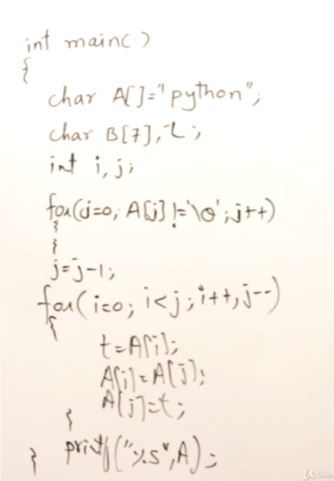 int main()
{
char A[]="python";
char B[7],t;
int i,j;
for(j=0; A[j]!='\0';j++)
{
}
j=j-1;
for(i=0; i<j;i++,j--)
{
t=A[i];
A[i]=A[j];
A[j]=t;
}
} printf("%s",A);